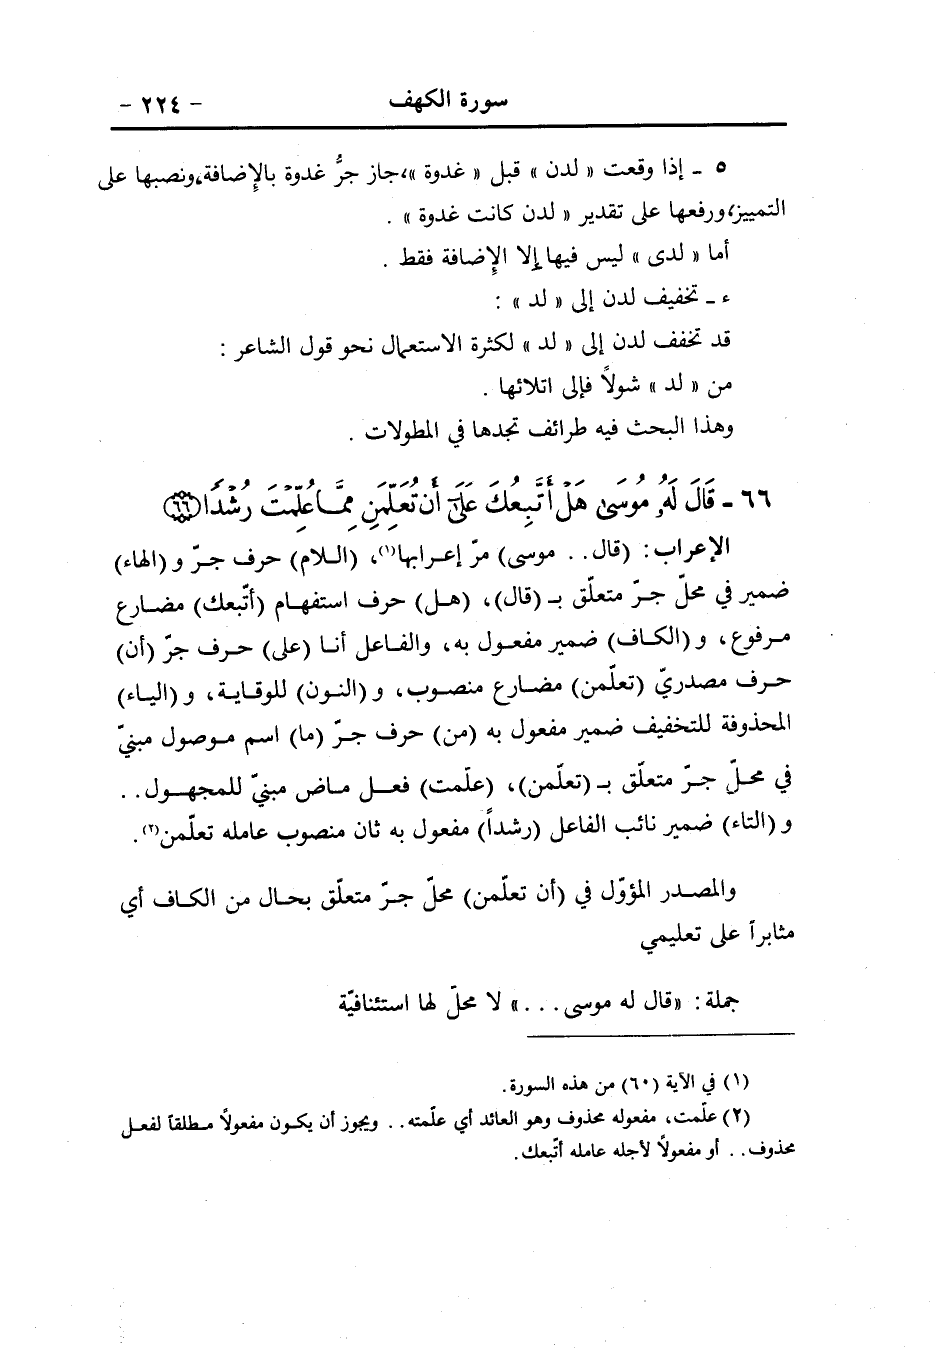 سورة الكهف - ٢٢٤ -
٥ - إذا وقعت « لدن » قبل « غدوة »، جاز جرُّ غدوة بالإِضافة، ونصبها على
التمييز، ورفعها على تقدير « لدن كانت غدوة » .
أما « لدى » ليس فيها إلا الإِضافة فقط .
ء - تخفيف لدن إلى « لد » :
قد تخفف لدن إلى « لد » لكثرة الاستعمال نحو قول الشاعر :
من « لد » شولاً فإلى اتلائها .
وهذا البحث فيه طرائف تجدها في المطولات .
٦٦ - قَالَ لَهُۥ مُوسَىٰ هَلْ أَتَّبِعُكَ عَلَىٰٓ أَن تُعَلِّمَنِ مِمَّا عُلِّمْتَ رُشْدًا ﴿٦٦﴾
الإعراب: (قال.. موسى) مرّ إعرابها(١)، (اللام) حرف جرّ و (الهاء)
ضمير في محلّ جرّ متعلّق بـ (قال)، (هل) حرف استفهام (أتّبعك) مضارع
مرفوع، و (الكاف) ضمير مفعول به، والفاعل أنا (على) حرف جرّ (أن)
حرف مصدريّ (تعلّمن) مضارع منصوب، و (النون) للوقاية، و (الياء)
المحذوفة للتخفيف ضمير مفعول به (من) حرف جرّ (ما) اسم موصول مبنيّ
في محلّ جرّ متعلّق بـ (تعلّمن)، (علّمت) فعل ماض مبنيّ للمجهول..
و (التاء) ضمير نائب الفاعل (رشداً) مفعول به ثان منصوب عامله تعلّمن(٢).
والمصدر المؤوّل في (أن تعلّمن) محلّ جرّ متعلّق بحال من الكاف أي
مثابراً على تعليمي
جملة: «قال له موسى...» لا محلّ لها استئنافيّة
(١) في الآية (٦٠) من هذه السورة.
(٢) علّمت، مفعوله محذوف وهو العائد أي علّمته.. ويجوز أن يكون مفعولاً مطلقاً لفعل
محذوف.. أو مفعولاً لأجله عامله أتّبعك.